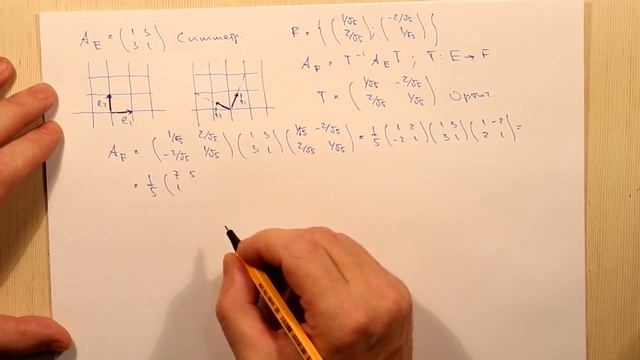 A_E = (1 3 / 3 1) Симметр.
F = { (1/√5 / 2/√5) ; (-2/√5 / 1/√5) }
A_F = T⁻¹ A_E T ; T: E → F
e₂ e₁ f₂ f₁
T = (1/√5 -2/√5 / 2/√5 1/√5) Ортог.
A_F = (1/√5 2/√5 / -2/√5 1/√5) (1 3 / 3 1) (1/√5 -2/√5 / 2/√5 1/√5) = 1/5 (1 2 / -2 1) (1 3 / 3 1) (1 -2 / 2 1) =
= 1/5 (7 5 / 1